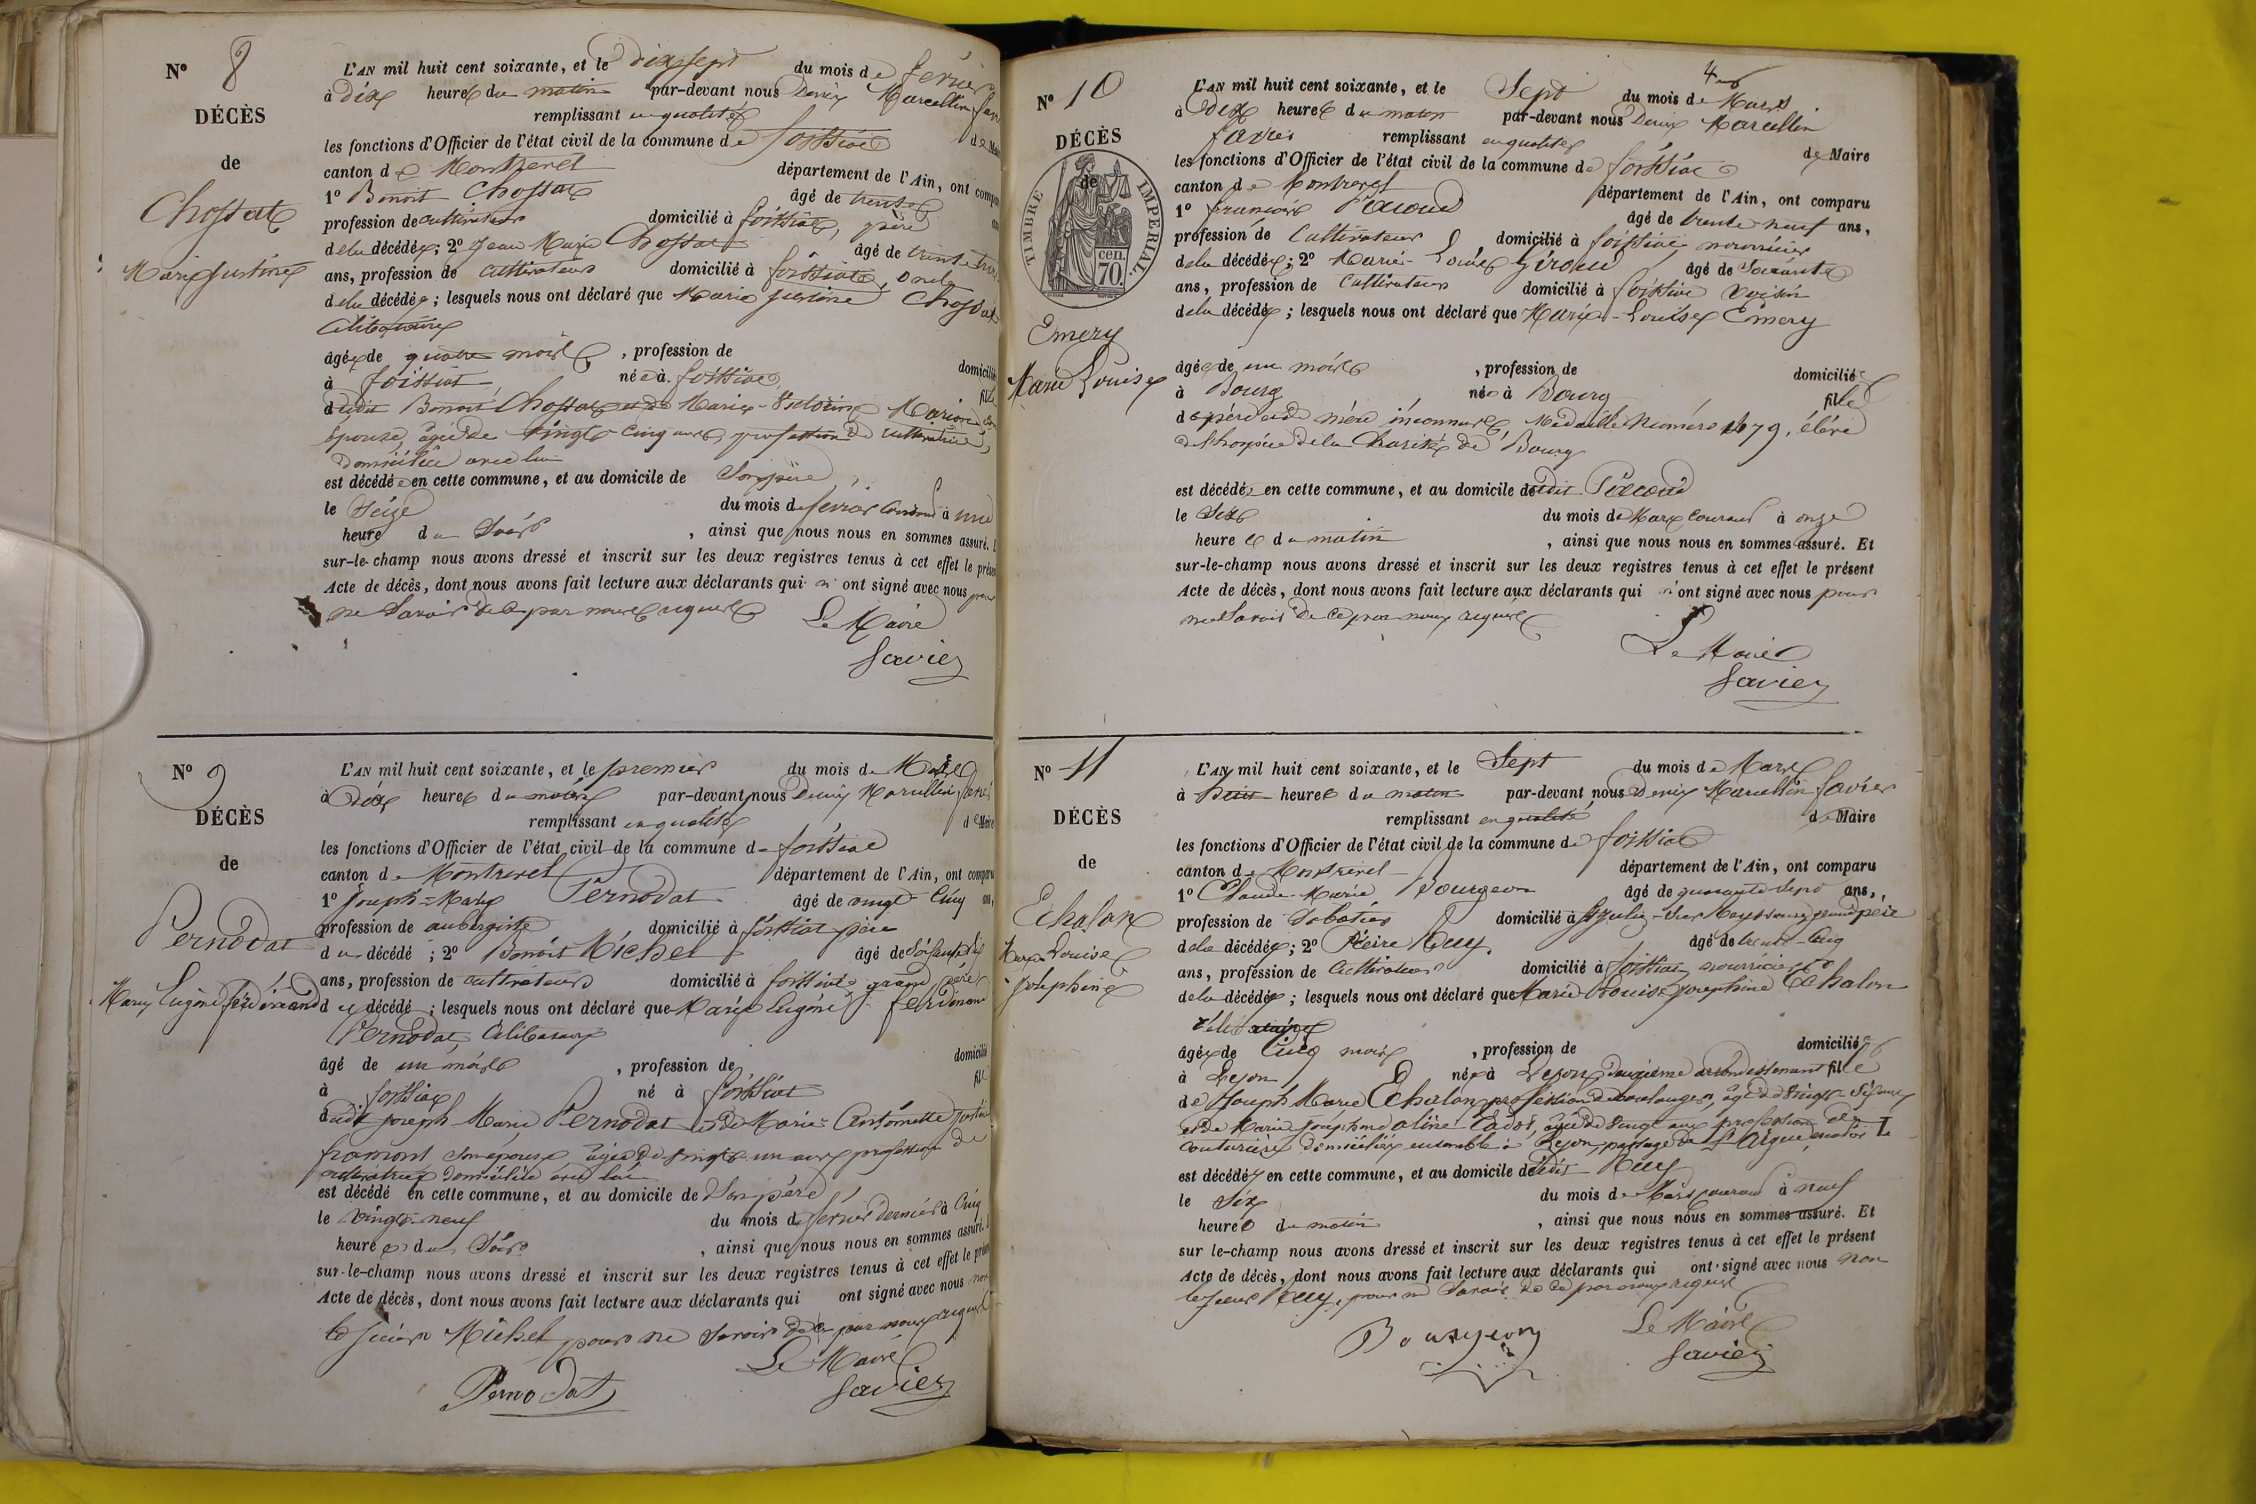 N° 8
DÉCÈS
de
Chossat
Marie Justine
L'AN mil huit cent soixante, et le dix sept du mois de février
à dix heures du matin par-devant nous Denis Marcellin
remplissant en qualité de Mai
les fonctions d'Officier de l'état civil de la commune de foissiat
canton de Montrevel département de l'Ain, ont compa
1° Benoit Chossat âgé de trente
profession de cultivateur domicilié à foissiat, père
de la décédée; 2° Jean Marie Chossat âgé de trente trois
ans, profession de cultivateur domicilié à foissiat, oncle
de la décédée; lesquels nous ont déclaré que Marie Justine Chossat
célibataire
âgée de quatre mois, profession de domiciliée
à foissiat née à foissiat fille
dudit Benoit Chossat et de Marie-Victorine
épouse, âgée de vingt cinq ans, profession de cultivatrice,
domiciliée avec lui
est décédée en cette commune, et au domicile de son père
le seize du mois de février courant à une
heure du soir, ainsi que nous nous en sommes assuré.
sur-le-champ nous avons dressé et inscrit sur les deux registres tenus à cet effet le prése
Acte de décès, dont nous avons fait lecture aux déclarants qui n'ont signé avec nous pour
ne savoir de ce par nous requis
Le Maire
favier
N° 9
DÉCÈS
de
Pernodat
Marie Eugène ferdinand
L'AN mil huit cent soixante, et le premier du mois de Mars
à dix heures du matin par-devant nous Denis Marcellin
remplissant en qualité de Maire
les fonctions d'Officier de l'état civil de la commune de foissiat
canton de Montrevel département de l'Ain, ont comparu
1° Joseph-Marie Pernodat âgé de vingt cinq ans,
profession de aubergiste domicilié à foissiat père
du décédé; 2° Benoit Michel âgé de soixante dix
ans, profession de cultivateur domicilié à foissiat grand père
du décédé; lesquels nous ont déclaré que Marie Eugène ferdinand
Pernodat, célibataire
âgé de un mois, profession de domicilié
à foissiat né à foissiat fils
dudit Joseph Marie Pernodat et de Marie-Antoinette
fromont son épouse âgée de vingt un ans profession de
cultivatrice domiciliée avec lui
est décédé en cette commune, et au domicile de son père
le vingt-neuf du mois de février dernier à cinq
heures du soir, ainsi que nous nous en sommes assuré.
sur-le-champ nous avons dressé et inscrit sur les deux registres tenus à cet effet le présen
Acte de décès, dont nous avons fait lecture aux déclarants qui ont signé avec nous non
le sieur Michel pour ne savoir de ce par nous requis
Le Maire
Pernodat favier
4
N° 10
DÉCÈS
de
TIMBRE IMPERIAL.
cen. 70.
Emery
Marie Louise
L'AN mil huit cent soixante, et le Sept du mois de Mars
à dix heures du matin par-devant nous Denis Marcellin
favier remplissant en qualité de Maire
les fonctions d'Officier de l'état civil de la commune de foissiat
canton de Montrevel département de l'Ain, ont comparu
1° françois Pécoud âgé de trente neuf ans,
profession de cultivateur, domicilié à foissiat, nourricier
de la décédée; 2° Marie-Louis Giroud âgé de soixante
ans, profession de cultivateur domicilié à foissiat voisin
de la décédée; lesquels nous ont déclaré que Marie-Louise Emery
âgée de un mois, profession de domiciliée
à Bourg née à Bourg fille
de père et de mère inconnus, Médaille numéro 1079, élève
de l'hospice de la Charité de Bourg
est décédée en cette commune, et au domicile dudit Pécoud
le six du mois de Mars courant à onze
heures du matin, ainsi que nous nous en sommes assuré. Et
sur-le-champ nous avons dressé et inscrit sur les deux registres tenus à cet effet le présent
Acte de décès, dont nous avons fait lecture aux déclarants qui n'ont signé avec nous pour
ne savoir de ce par nous requis
Le Maire
favier
N° 11
DÉCÈS
de
Echalon
Marie Louise
Josephine
L'AN mil huit cent soixante, et le Sept du mois de Mars
à huit heures du matin par-devant nous Denis Marcellin favier
remplissant en qualité de Maire
les fonctions d'Officier de l'état civil de la commune de foissiat
canton de Montrevel département de l'Ain, ont comparu
1° Claude-Marie Bourgeon âgé de quarante sept ans,
profession de sabotier domicilié à St Julien-sur Reyssouze grand père
de la décédée; 2° Pierre Puy âgé de trente-cinq
ans, profession de cultivateur domicilié à foissiat nourricier
de la décédée; lesquels nous ont déclaré que Marie Louise Josephine Echalon
célibataire
âgée de cinq mois, profession de domiciliée
à Lyon née à Lyon deuxième arrondissement fille
de Joseph Marie Echalon profession de boulanger, âgé de vingt-six ans
et de Marie Joséphine aline âgée de vingt ans profession de
couturière domiciliés ensemble à Lyon, passage de l'Argue
est décédée en cette commune, et au domicile dudit Puy
le six du mois de Mars courant à neuf
heures du matin, ainsi que nous nous en sommes assuré. Et
sur le-champ nous avons dressé et inscrit sur les deux registres tenus à cet effet le présent
Acte de décès, dont nous avons fait lecture aux déclarants qui ont signé avec nous non
le sieur Puy, pour ne savoir de ce par nous requis
Bourgeon Le Maire
favier